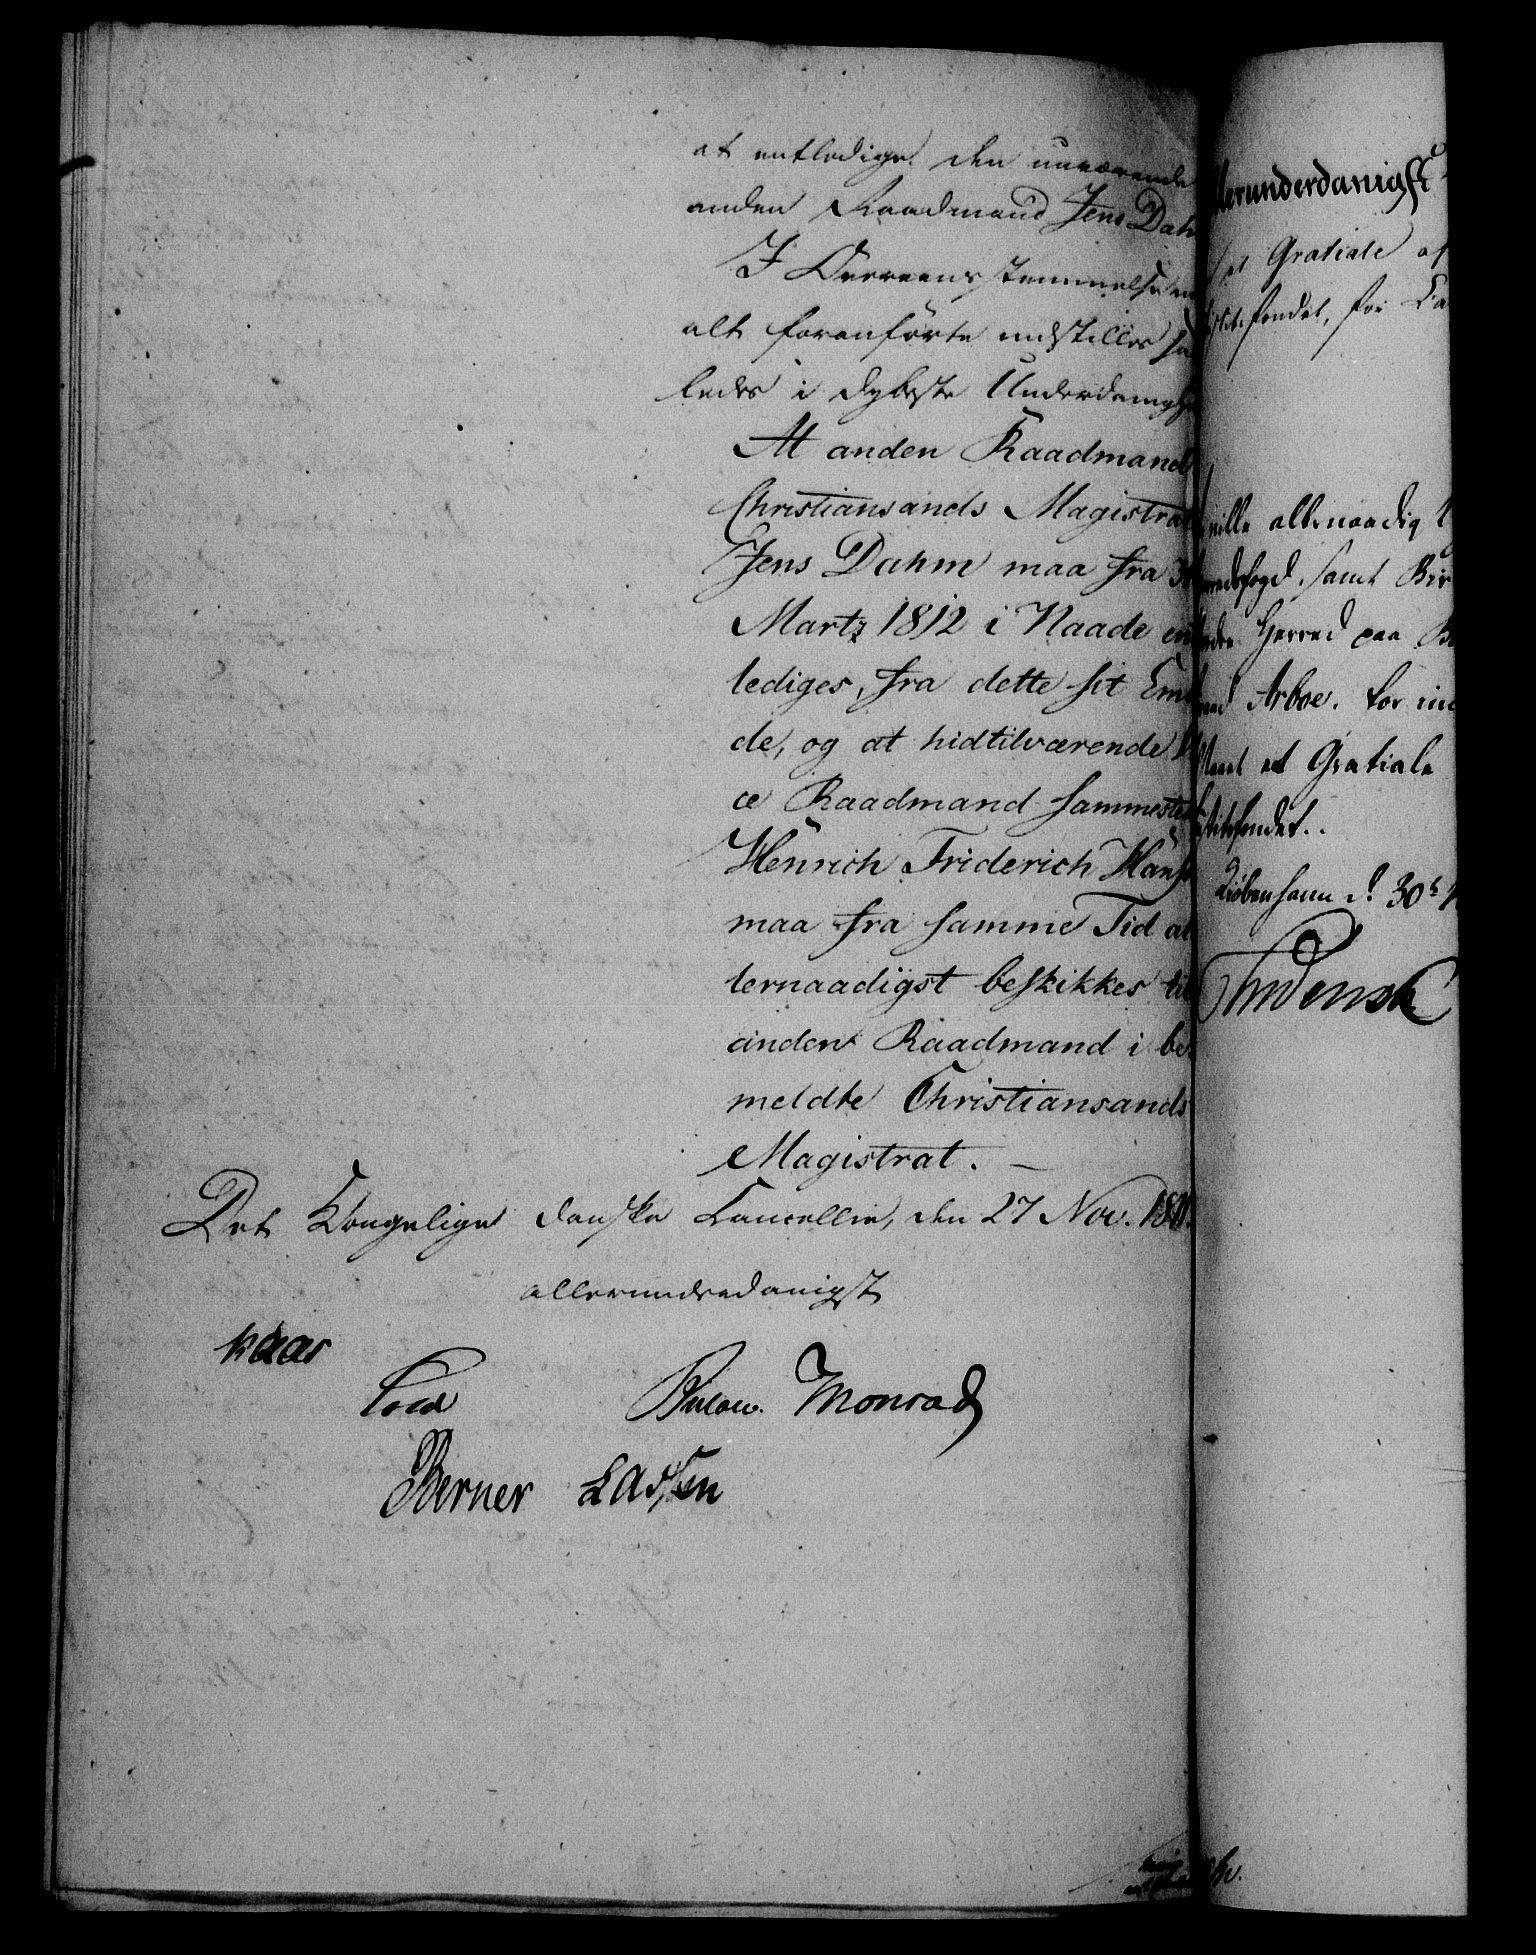 at entledige den nuværende
anden Raadmand Jens Dah
I Overeensstemmelse
alt foranførte indstilles saa
ledes i dybeste Underdanigh
At anden Raadmand
Christiansands Magistrat
Jens Dahm maa fra
Martz 1812 i Naade ent
lediges, fra dette sit Em
de, og at hidtilværende
ce Raadmand sammested
Henrich Friderich Hans
maa fra samme Tid al
lernaadigst beskikkes til
anden Raadmand i be
meldte Christiansands
Magistrat. —
Det Kongelige danske Cancellie, den 27 Nov. 1811.
allerunderdanigst
Kaas
Cold Bülow. Monrad
Berner Lassen
lerunderdanigst
et Gratiale af
fondet, for Ca
ville allernaadig
fogd samt Bir
Herred paa
Arboe. for
et Gratiale
fondet..
Kiøbenhavn d. 30